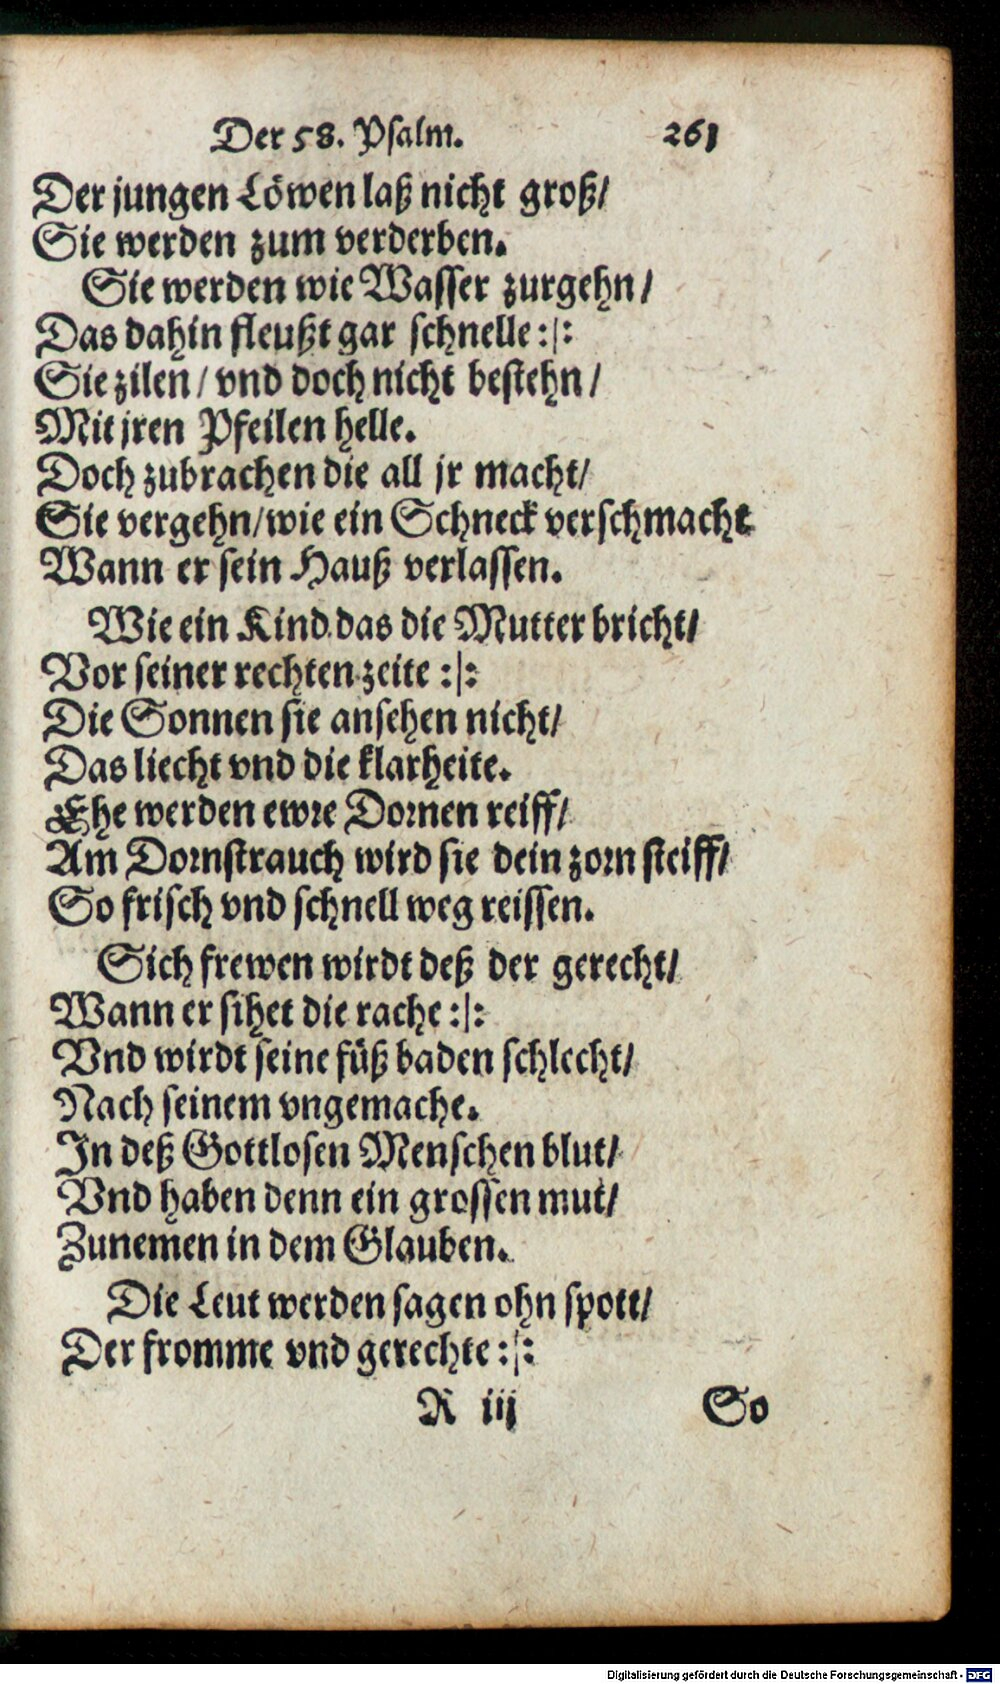 Der 58. Psalm. 261
Der jungen Löwen laß nicht groß/
Sie werden zum verderben.
Sie werden wie Wasser zurgehn/
Das dahin fleußt gar schnelle :|:
Sie zilen / vnd doch nicht bestehn /
Mit jren Pfeilen helle.
Doch zubrachen die all jr macht/
Sie vergehn/wie ein Schneck verschmacht
Wann er sein Hauß verlassen.
Wie ein Kind das die Mutter bricht/
Vor seiner rechten zeite :|:
Die Sonnen sie ansehen nicht/
Das liecht vnd die klarheite.
Ehe werden ewre Dornen reiff/
Am Dornstrauch wird sie dein zorn steiff/
So frisch vnd schnell weg reissen.
Sich frewen wirdt deß der gerecht/
Wann er sihet die rache :|:
Vnd wirdt seine füß baden schlecht/
Nach seinem vngemache.
In deß Gottlosen Menschen blut/
Vnd haben denn ein grossen mut/
Zunemen in dem Glauben.
Die Leut werden sagen ohn spott/
Der fromme vnd gerechte :|:
R iij So
Digitalisierung gefördert durch die Deutsche Forschungsgemeinschaft - DFG